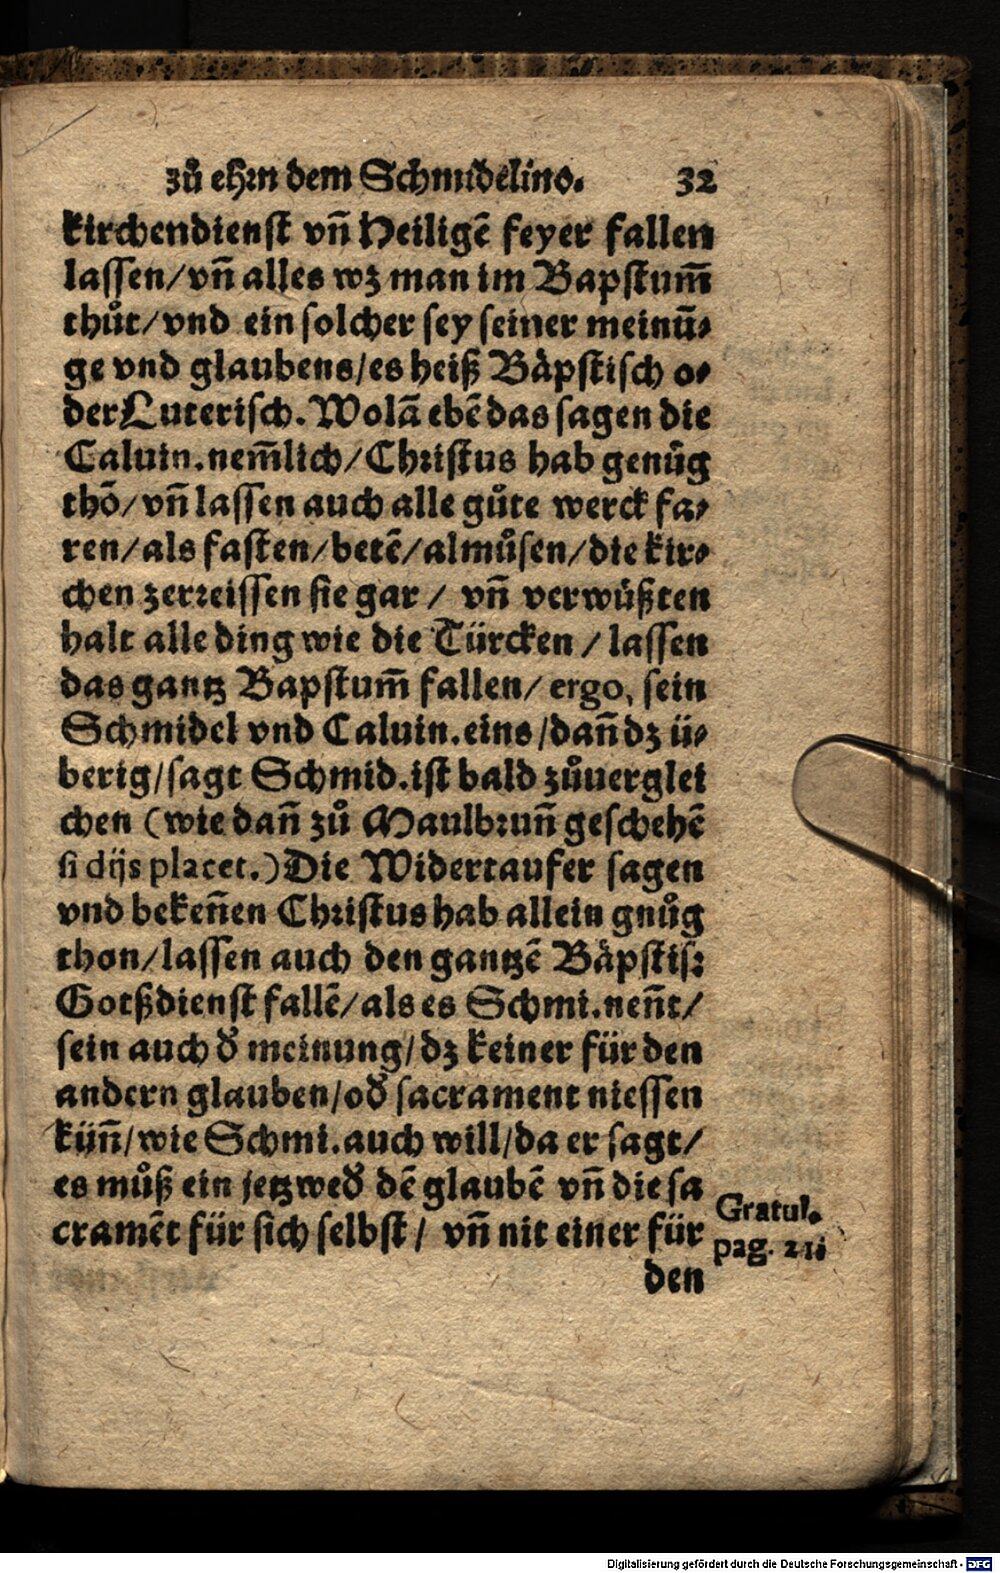 zů ehrn dem Schmidelino. 32
kirchendienst vñ Heiligẽ feyer fallen
lassen/vñ alles wz man im Bapstum̃
thůt/vnd ein solcher sey seiner meinũ-
ge vnd glaubens/es heiß Bäpstisch o-
der Luterisch. Wolã ebẽ das sagen die
Caluin. nem̃lich/Christus hab genůg
thõ/vñ lassen auch alle gůte werck fa-
ren/als fasten/betẽ/almůsen/die kir-
chen zerreissen sie gar/ vñ verwüßten
halt alle ding wie die Türcken/lassen
das gantz Bapstum̃ fallen/ergo, sein
Schmidel vnd Caluin. eins/dañ dz ü-
berig/sagt Schmid. ist bald zůuerglei
chen (wie dañ zů Maulbruñ geschehẽ
si dijs placet.) Die Widertaufer sagen
vnd bekeñen Christus hab allein gnůg
thon/lassen auch den gantzẽ Bäpstis:
Gotßdienst fallẽ/als es Schmi. neñt/
sein auch ð meinung/dz keiner für den
andern glauben/oð sacrament niessen
küñ/wie Schmi. auch will/da er sagt/
es můß ein jetzweð dẽ glaubẽ vñ die sa
cramẽt für sich selbst/ vñ nit einer für
den
Gratul.
pag. 21i
Digitalisierung gefördert durch die Deutsche Forschungsgemeinschaft - DFG